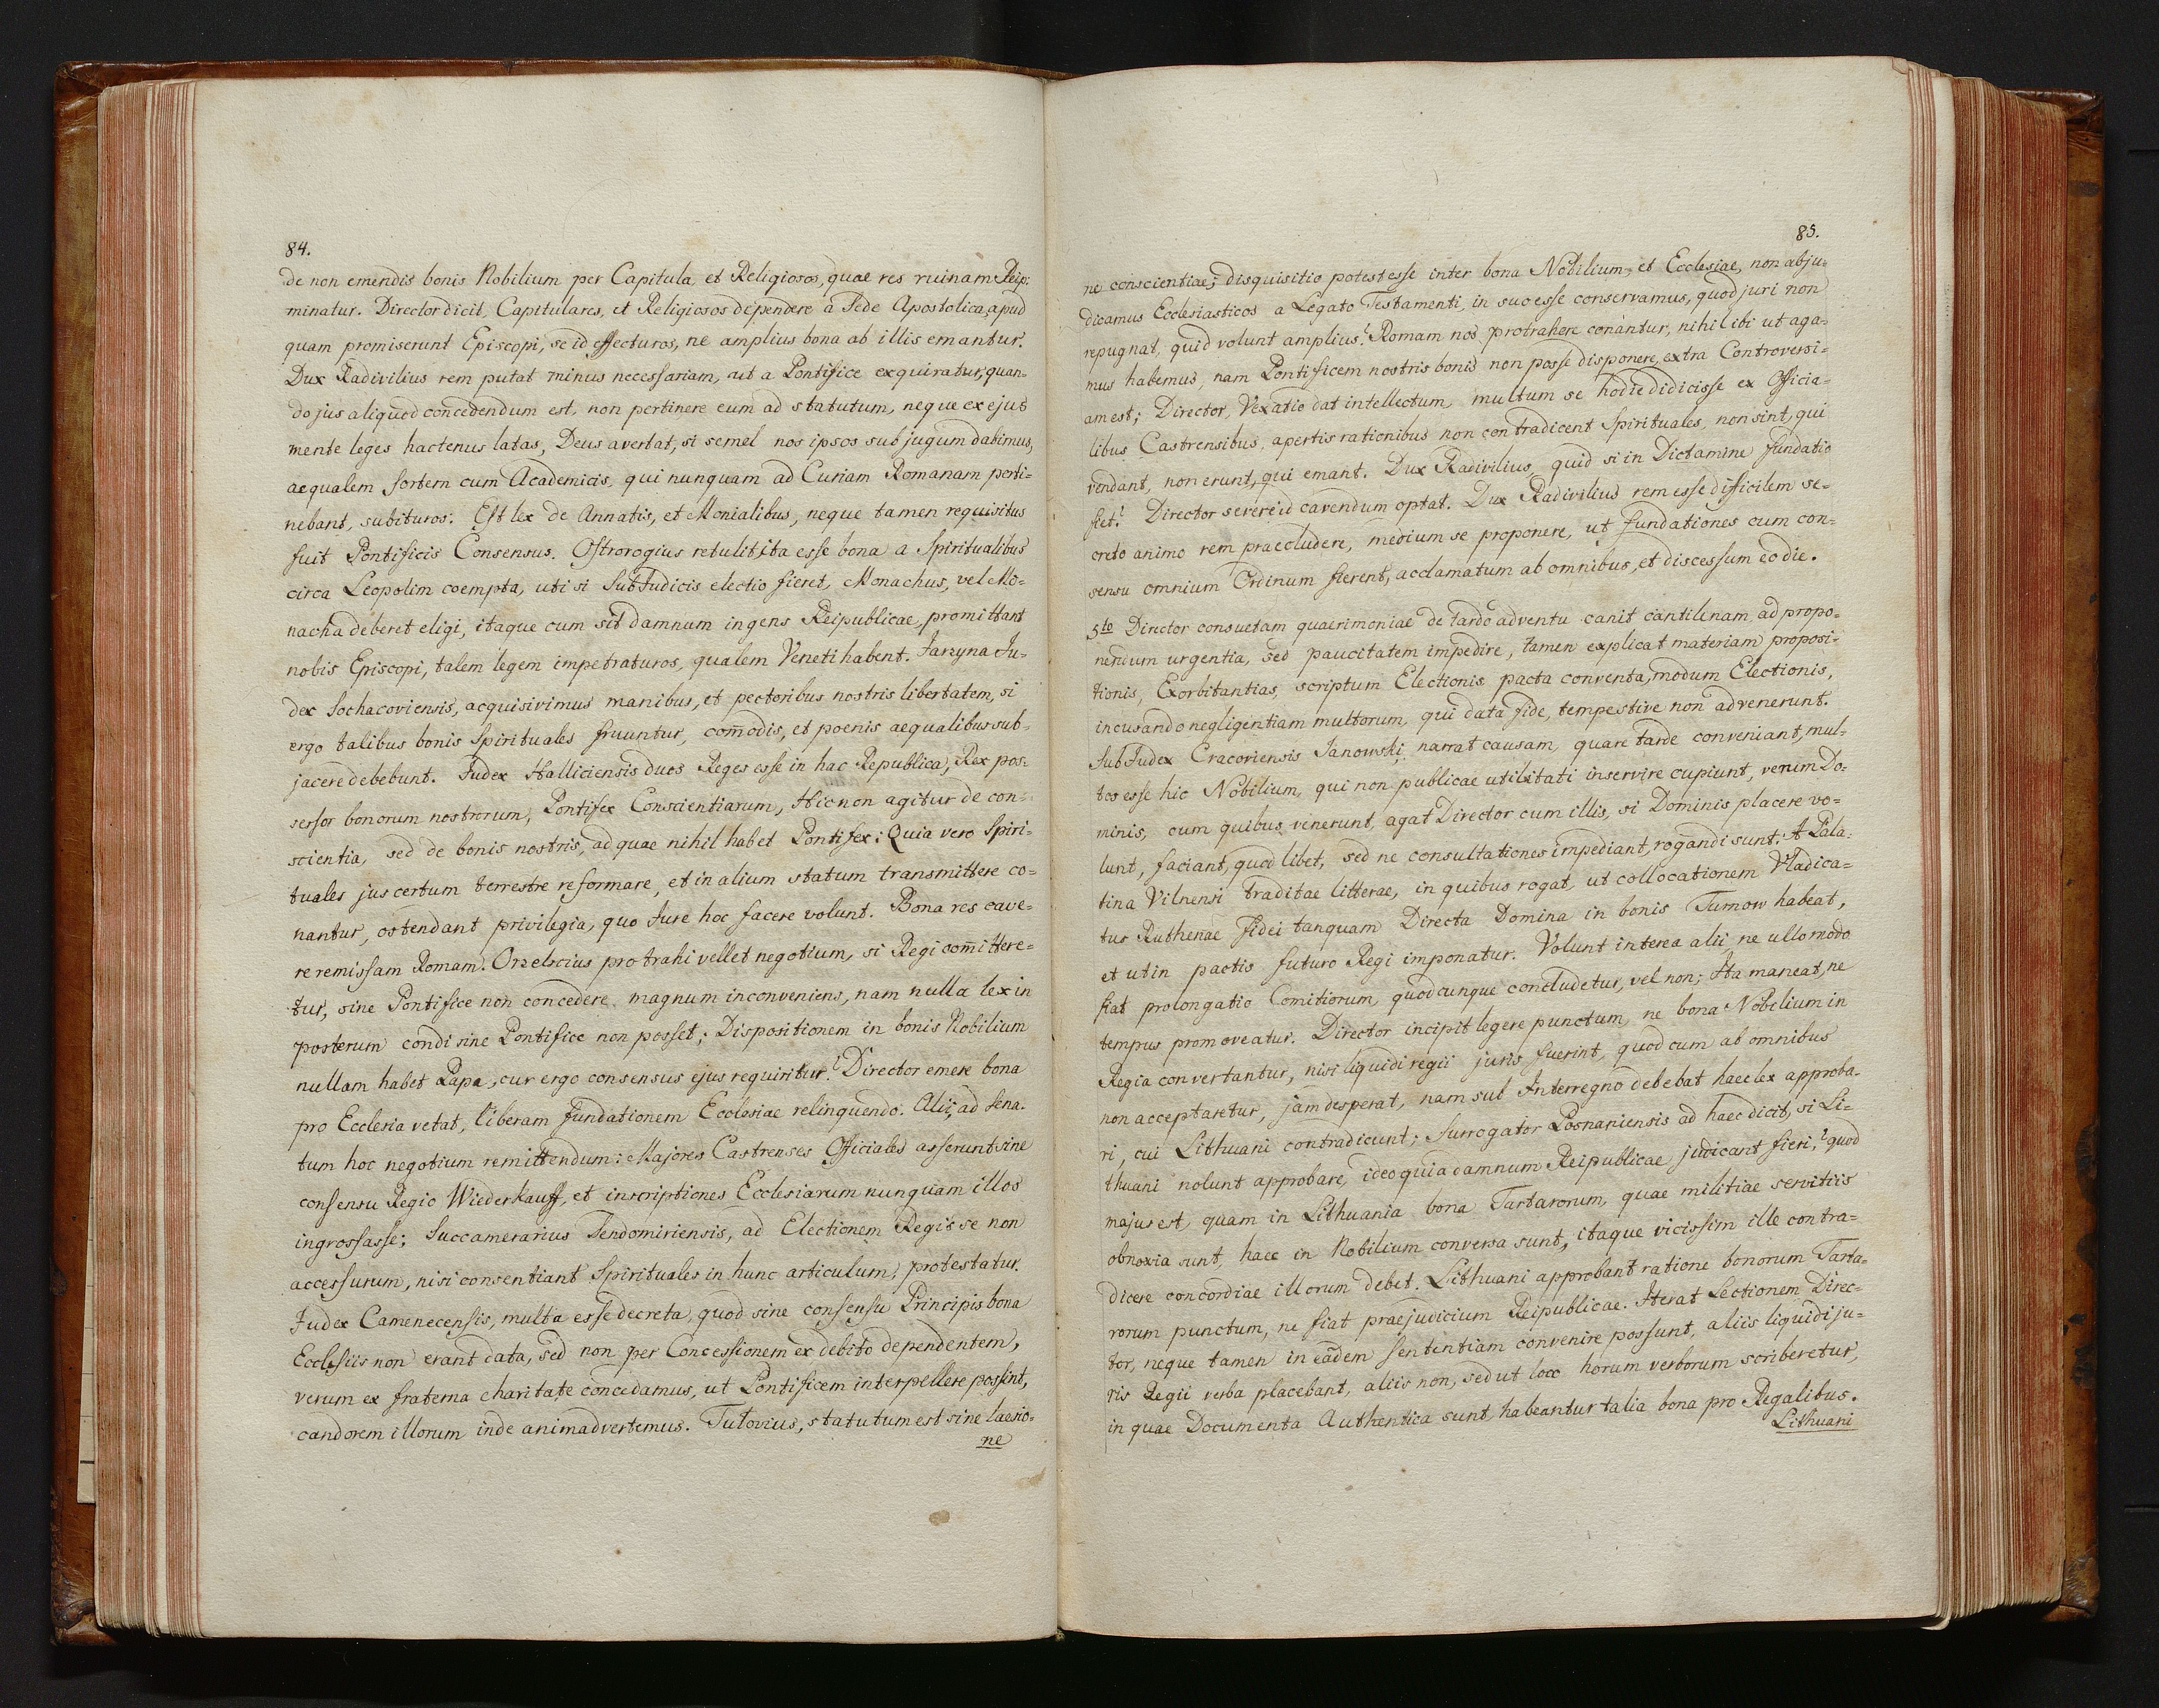 84.
de non emendis bonis Nobilium per Capitula et Religiosos, quae res ruinam Reip:
minatur. Director dicit, Capitulares, et Religiosos dependere a Sede Apostolica, apud
quam promiserunt Episcopi, se id effecturos, ne amplius bona ab illis emantur.
Dux Radivilius rem putat minus necessariam, ut a Pontifice exquiratur, quan-
do jus aliquod concedendum est, non pertinere eum ad statutum, neque ex ejus
mente leges hactenus latas, Deus avertat, si semel nos ipsos sub jugum dabimus,
aequalem sortem cum Academicis, qui nunquam ad Curiam Romanam perti=
nebant, subituros. Est lex de Annatis, et Monialibus, neque tamen requisitus
fuit Pontificis Consensus. Ostrorogius retulit, ita esse bona a Spiritualibus
circa Leopolim coempta, uti si SubJudicis electio fieret, Monachus, vel Mo=
nacha deberet eligi, itaque cum sit damnum ingens Reipublicae, promittant
nobis Episcopi, talem legem impetraturos, qualem Veneti habent. Jarzyna Ju=
dex Sochacoviensis, acquisivimus manibus, et pectoribus nostris libertatem, si
ergo talibus bonis Spirituales fruuntur, com̄odis, et poenis aequalibus sub-
jacere debebunt. Judex Halliciensis duos Reges esse in hac Republica, Rex pos:
sessor bonorum nostrorum, Pontifex Conscientiarum, Hic non agitur de con-
scientia, sed de bonis nostris, ad quae nihil habet Pontifex: Quia vero Spiri-
tuales jus certum terrestre reformare, et in alium statum transmittere co=
nantur, ostendant privilegia, quo Jure hoc facere volunt. Bona res cave-
re remissam Romam. Orzelscius protrahi vellet negotium, si Regi com̄ittere=
tur, sine Pontifice non concedere, magnum inconveniens, nam nulla lex in
posterum condi sine Pontifice non posset; Dispositionem in bonis Nobilium
nullam habet Papa, cur ergo consensus ejus requiritur? Director emere bona
pro Ecclesia vetat, liberam fundationem Ecclesiae relinquendo. Alii, ad Sena-
tum hoc negotium remittendum: Majores Castrenses Officiales asserunt sine
consensu Regio Wiederkauff, et inscriptiones Ecclesiarum nunquam illos
ingrossasse; Succamerarius Sendomiriensis, ad Electionem Regis se non
accessurum, nisi consentiant Spirituales in hunc articulum, protestatur.
Judex Camenecensis, multa esse decreta, quod sine consensu Principis bona
Ecclesiis non erant data, sed non per Concessionem ex debito dependentem,
verum ex fraterna charitate concedamus, ut Pontificem interpellere possint,
candorem illorum inde animadvertemus. Tutovius, statutum est sine laesio-
ne
85.
ne conscientiae; disquisitio potest esse inter bona Nobilium, et Ecclesiae, non abju-
dicamus Ecclesiasticos a Legato Testamenti, in suo esse conservamus, quod juri non
repugnat, quid volunt amplius? Romam nos protrahere conantur, nihil ibi ut aga-
mus habemus, nam Pontificem nostris bonis non posse disponere, extra Controversi=
am est; Director, Vexatio dat intellectum, multum se hodie didicisse ex Officia=
libus Castrensibus, apertis rationibus non contradicent Spirituales, non sint, qui
vendant, non erunt, qui emant. Dux Radivilius, quid si in Dictamine fundatio
fiet? Director severe id cavendum optat. Dux Radivilius rem esse difficilem se-
creto animo rem praecludere, medium se proponere, ut fundationes cum con=
sensu omnium Ordinum fierent, acclamatum ab omnibus, et discessum eo die.
5to Director consuetam quaerimoniae de tardo adventu canit cantilenam, ad propo=
nendum urgentia, sed paucitatem impedire, tamen explicat materiam proposi=
tionis, Exorbitantias, scriptum Electionis pacta conventa, modum Electionis,
incusando negligentiam multorum, qui data fide, tempestive non advenerunt.
SubJudex Cracoviensis Janowski, narrat causam, quare tarde conveniant, mul=
tos esse hic Nobilium, qui non publicae utilitati inservire cupiunt, verum Do=
minis, cum quibus venerunt, agat Director cum illis, si Dominis placere vo=
lunt, faciant, quod libet, sed ne consultationes impediant, rogandi sunt. A Pala-
tina Vilnensi traditae litterae, in quibus rogat, ut collocationem Vladica=
tus Ruthenae fidei tanquam Directa Domina in bonis Turnow habeat,
et ut in pactis futuro Regi imponatur. Volunt interea alii, ne ullo modo
fiat prolongatio Comitiorum, quodcunque concludetur, vel non; Ita maneat, ne
tempus promoveatur. Director incipit legere punctum, ne bona Nobilium in
Regia convertantur, nisi liquidi regii juris fuerint, quod cum ab omnibus
non acceptaretur, jam desperat, nam sub Interregno debebat haec lex approba-
ri, cui Lithuani contradicunt; Surrogator Posnaniensis ad haec dicit, si Li=
thuani nolunt approbare, ideo quia damnum Reipublicae judicant fieri,? quod
majus est, quam in Lithuania bona Tartarorum, quae militiae servitiis
obnoxia sunt, haec in Nobilium conversa sunt, itaque vicissim ille contra=
dicere concordiae illorum debet. Lithuani approbant ratione bonorum Tarta-
rorum punctum, ne fiat praejudicium Reipublicae. Iterat Lectionem Direc-
tor, neque tamen in eâdem sententiam convenire possunt, aliis liquidi ju=
ris Regii verba placebant, aliis non, sed ut loco horum verborum scriberetur,
in quae Documenta Authentica sunt, habeantur talia bona pro Regalibus.
Lithuani